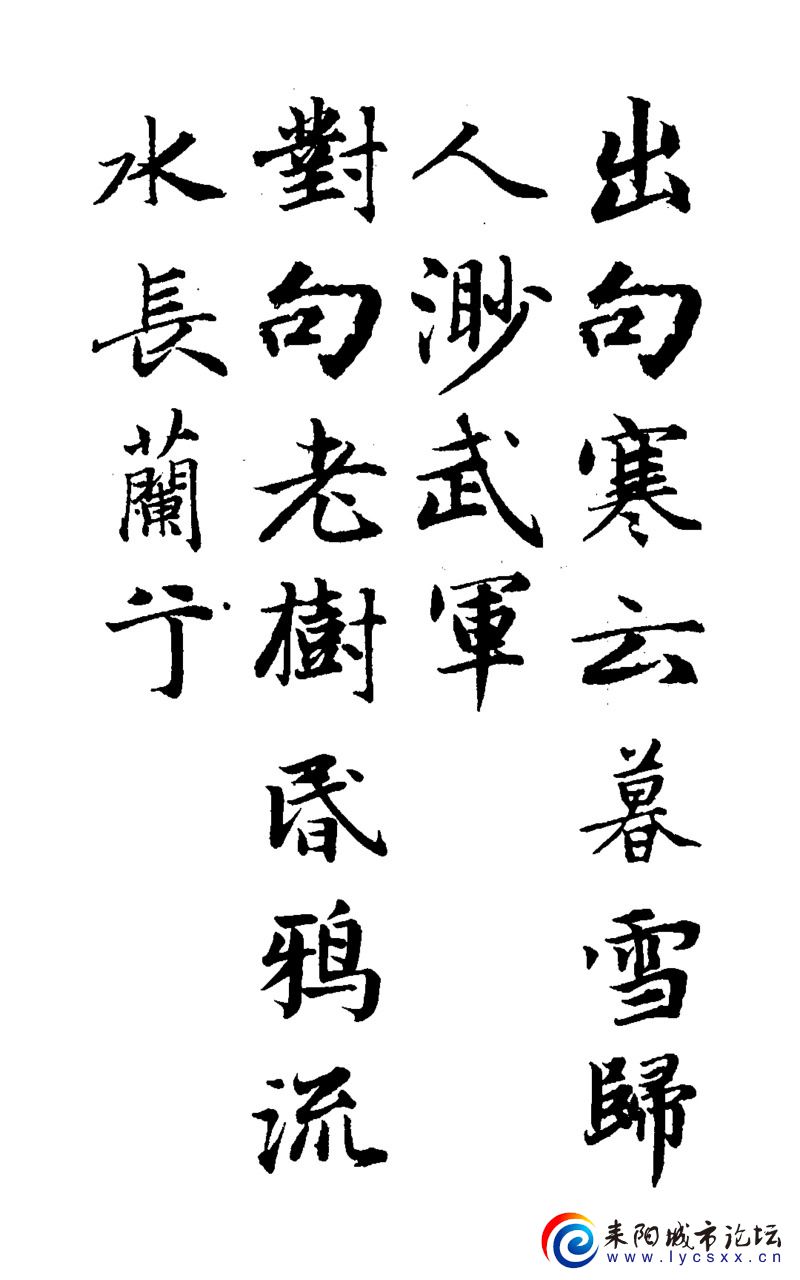 出句寒云暮雪歸
人渺武軍
對句老樹昏鴉流
水長蘭亍
耒阳城市论坛
www.lycsxx.cn